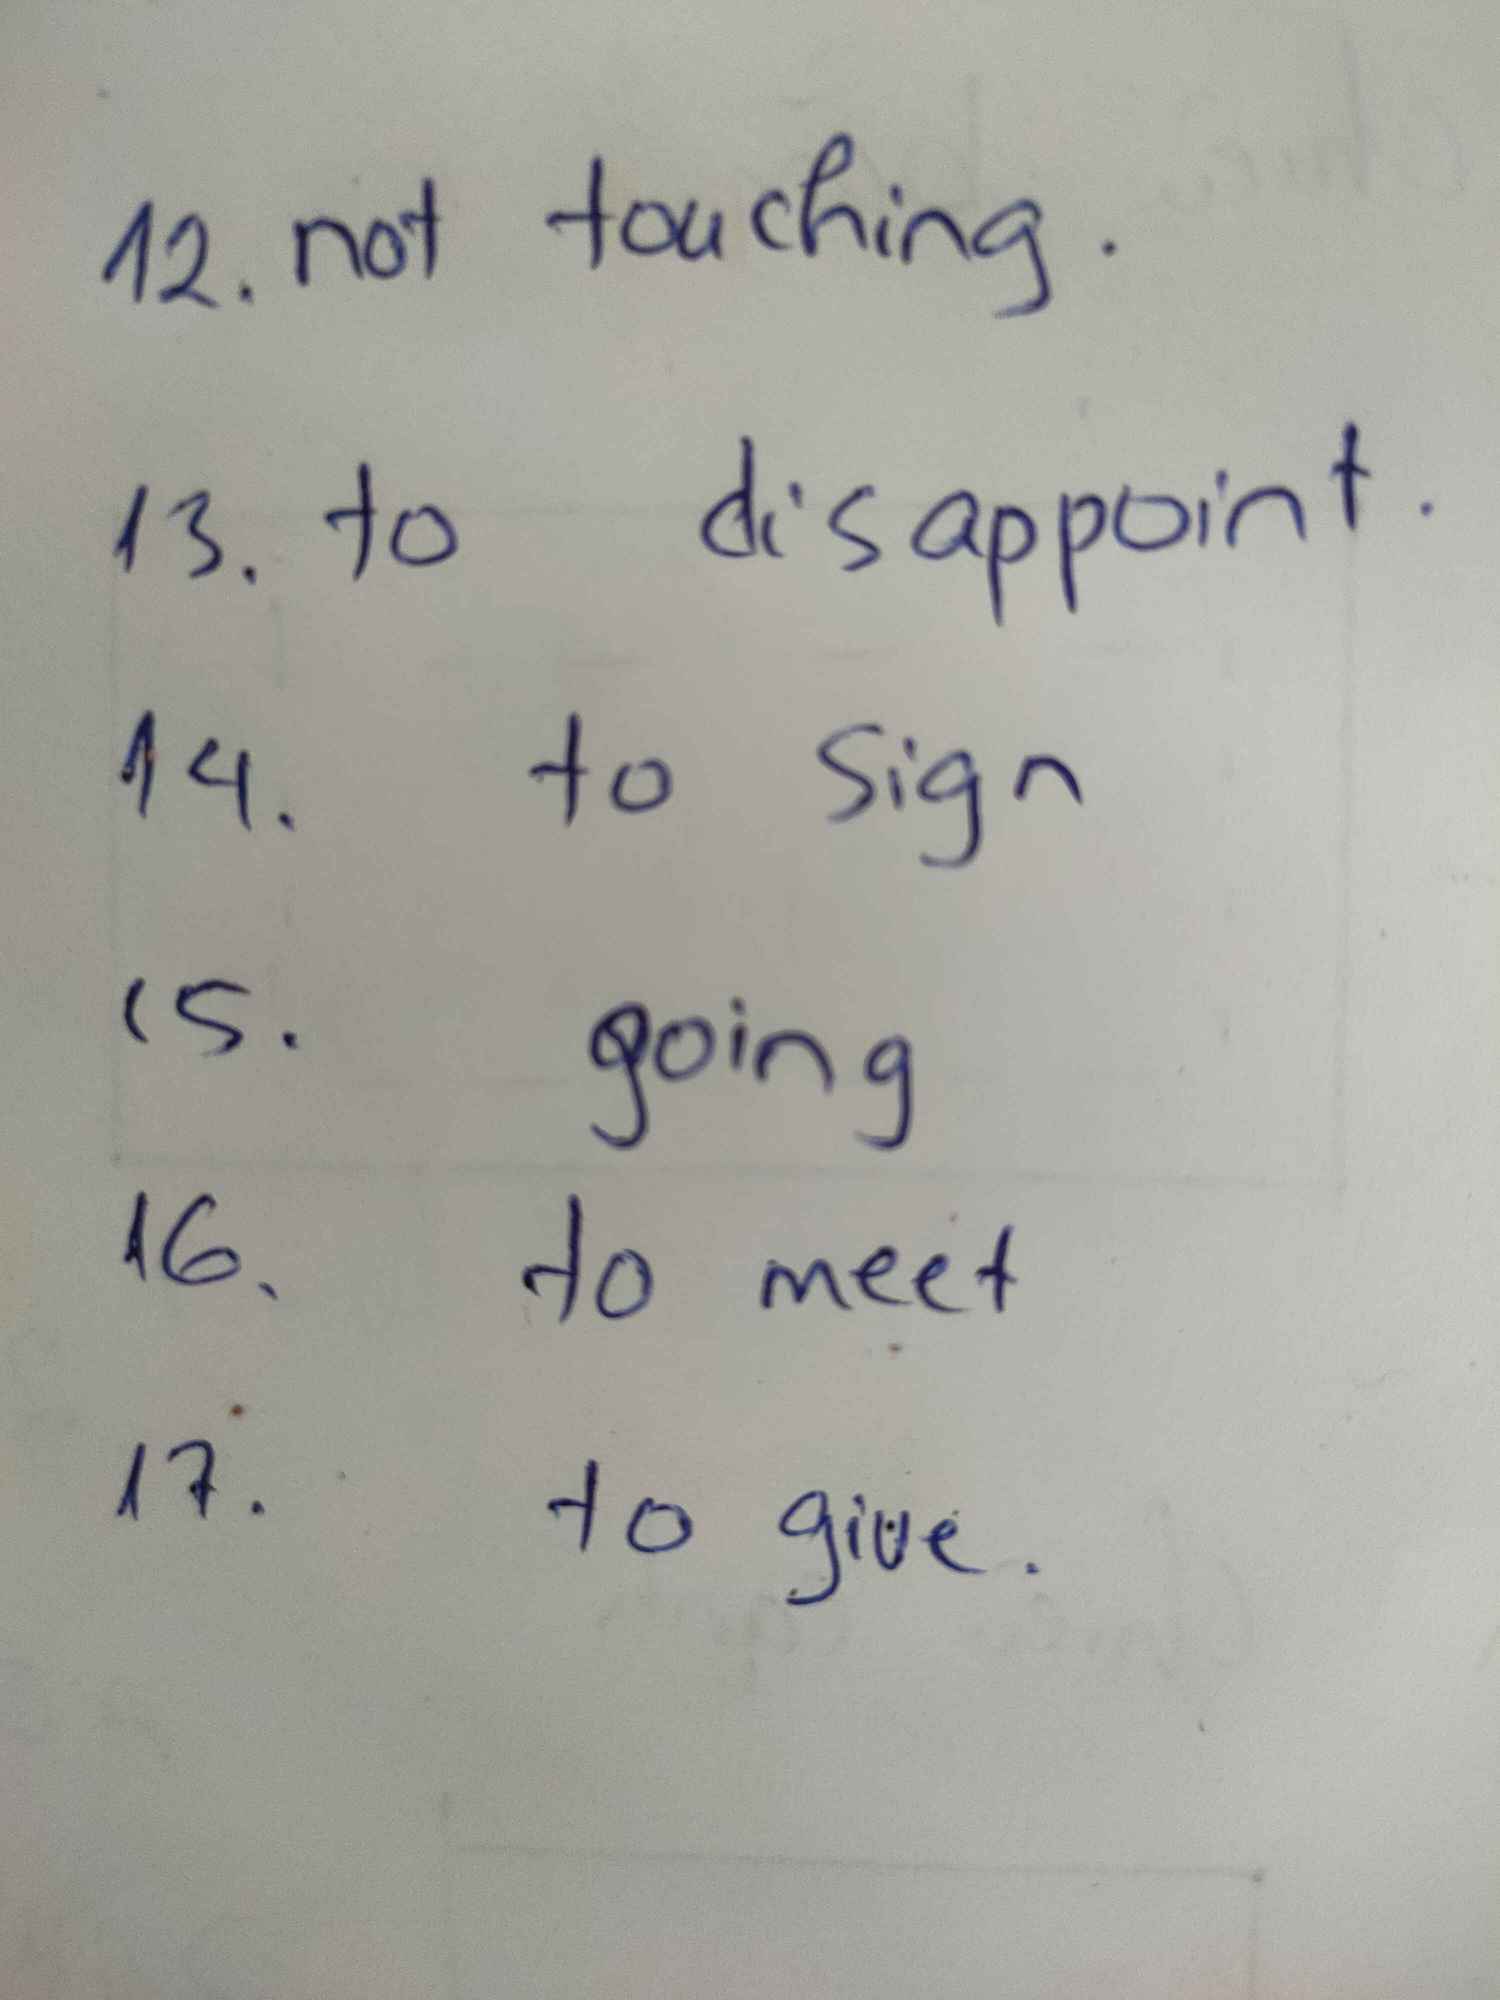 12. not touching.
13. to disappoint.
14. to sign
15. going
16. to meet
17. to give.